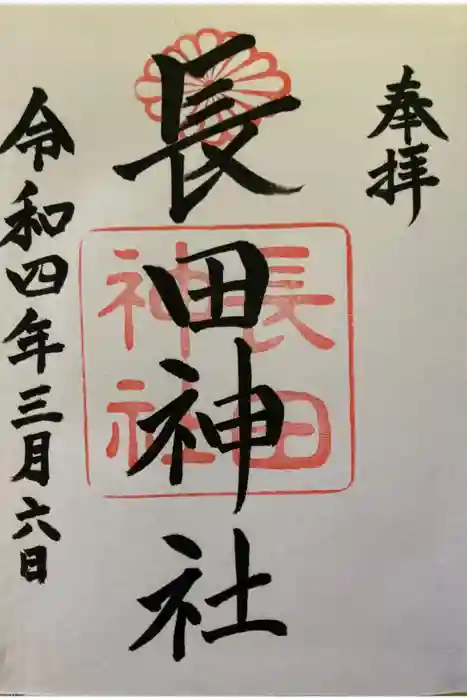 奉拝
長田神社
長田
神社
令和四年三月六日